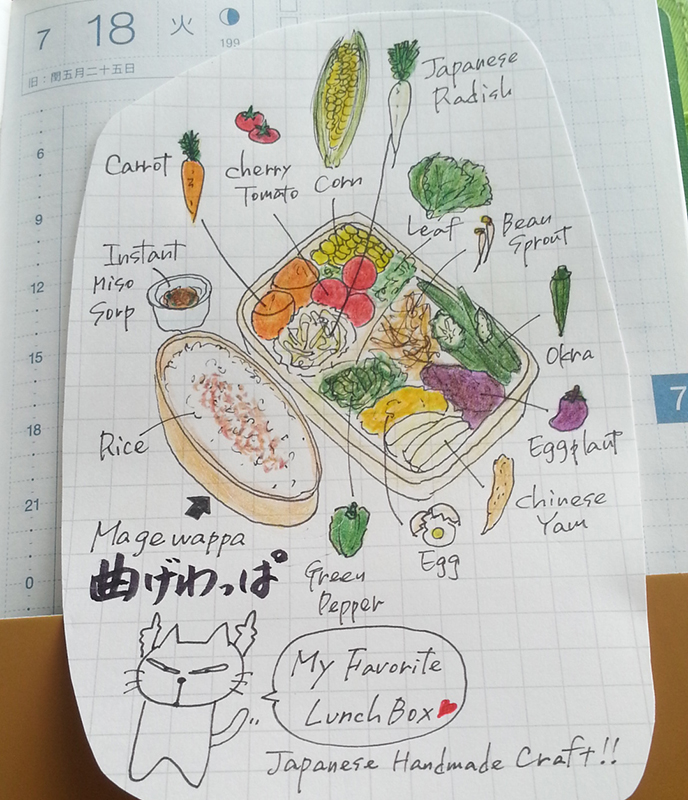 7 18 火
199
旧:閏五月二十五日
6
9
12
15
18
21
0
7
Japanese
Radish
Carrot
cherry
Tomato
Corn
Leaf
Bean
Sprout
Instant
Miso
Sorp
Okra
Rice
Eggplant
Chinese
Yam
Magewappa
曲げわっぱ
Green
Pepper
Egg
My Favorite
Lunch Box
Japanese Handmade Craft!!